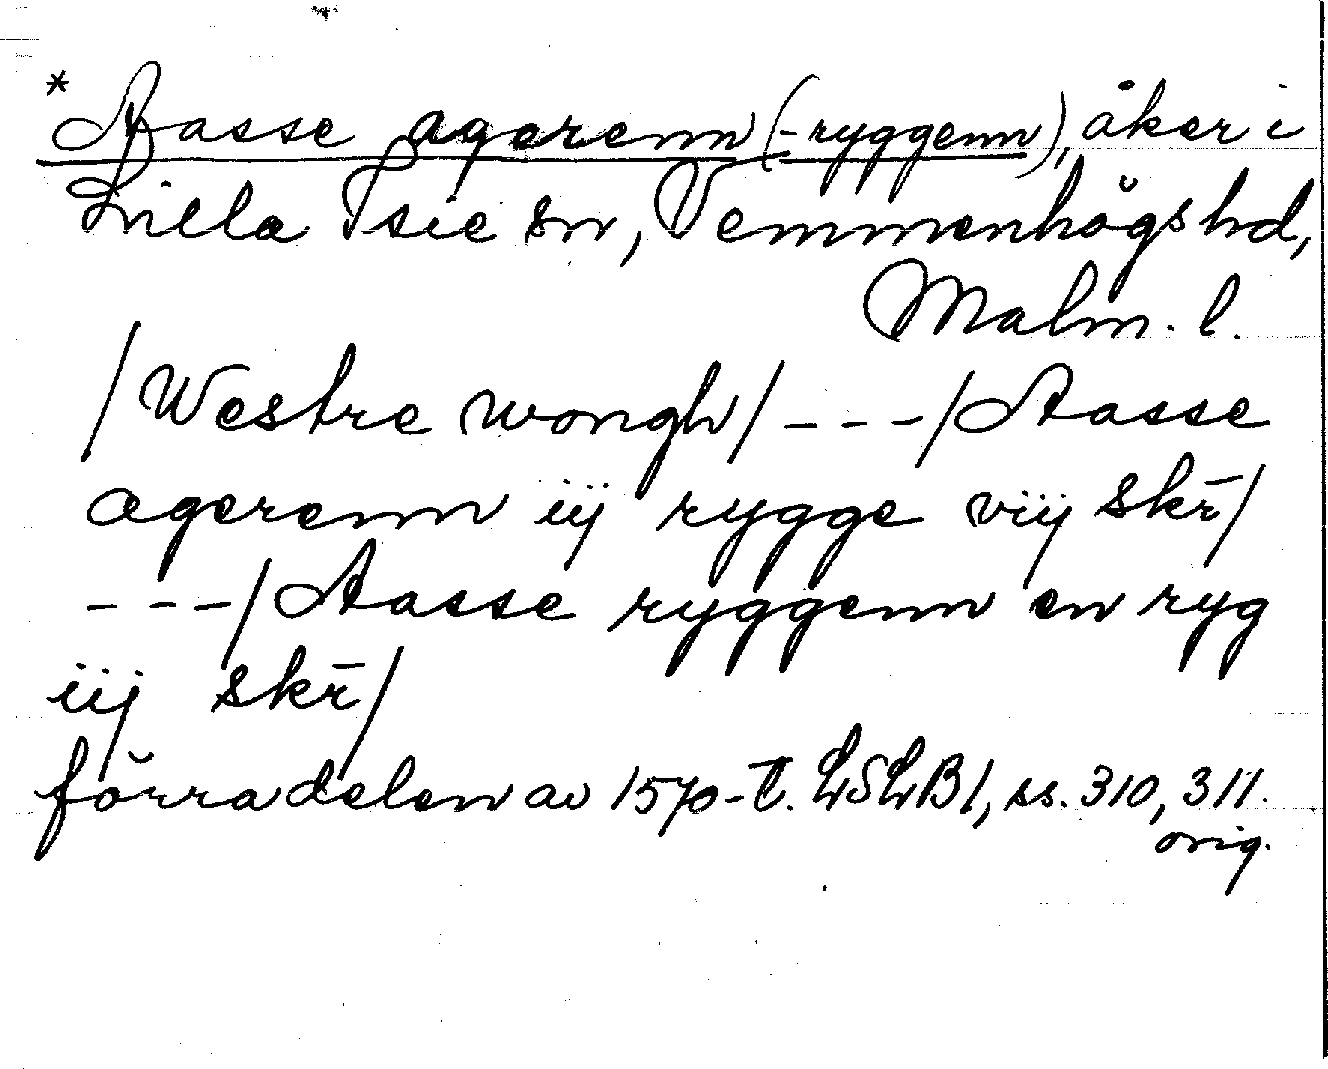 * Aasse agerenn (-ryggenn), åker i
Lilla Isie sn, Vemmenhögs hd,
Malm. l.
/Westre wongh/ --- /Aasse
agerenn iij rygge viij skr̄/
--- /Aasse ryggenn en ryg
iij skr̄/
förra delen av 1570-t. LSLB 1, ss. 310, 311.
orig.